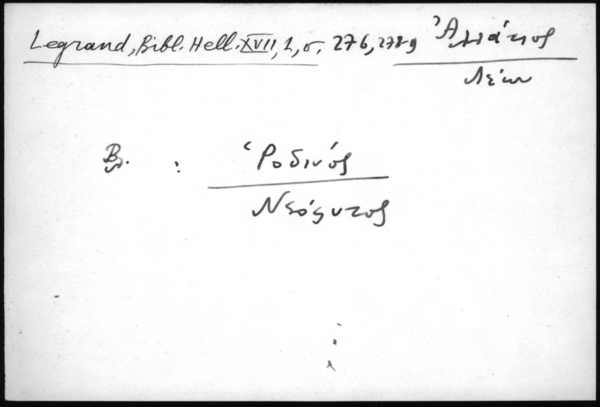 Legrand, Bibl. Hell. XVII, 2, σ. 276, 278-9 Ἀλλάτιος
Λέων
Βλ. : Ῥοδινός
Νεόφυτος